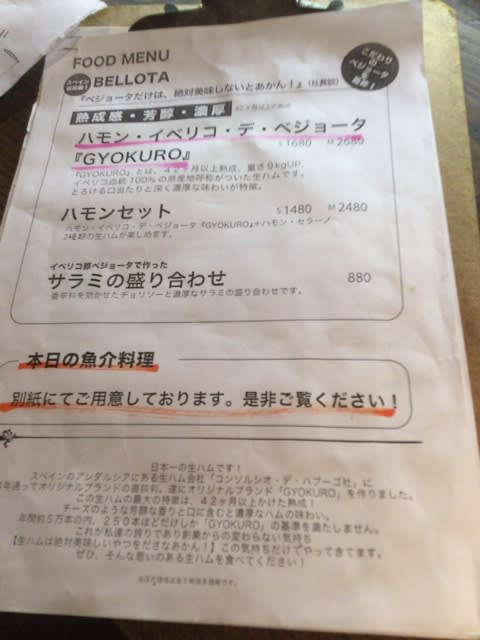 FOOD MENU
BELLOTA
『ベジョータだけは、絶対美味しないとあかん！』(社長談)
こだわりの
ベジョータ
熟成感・芳醇・濃厚 42ヶ月以上
ハモン・イベリコ・デ・ベジョータ
『GYOKURO』 S 1680 M 2680
『GYOKURO』とは、４２ヶ月以上熟成、重さ９kgUP、
イベリコ血統 100％の原産地呼称がついた生ハムです。
とろける口当たりと深く濃厚な味わいが特徴。
ハモンセット S 1480 M 2480
ハモン・イベリコ・デ・ベジョータ『GYOKURO』+ハモン・セラーノ
2種類の生ハムが楽しめます。
イベリコ豚ベジョータで作った
サラミの盛り合わせ 880
香辛料を効かせたチョリソーと濃厚なサラミの盛り合わせです。
本日の魚介料理
別紙にてご用意しております。是非ご覧ください！
日本一の生ハムです！
スペインのアンダルシアにある生ハム会社「コンソルシオ・デ・ハブーゴ社」に
年通ってオリジナルブランドの直談判。遂にオリジナルブランド「GYOKURO」を作りました。
この生ハムの最大の特徴は、４２ヶ月以上かけた熟成！
チーズのような芳醇な香りと口に含むと濃厚なハムの味わい。
年間約５万本の内、２５０本ほどだけしか「GYOKURO」の基準を満たしません。
これが私達の誇りであり創業からの変わらない気持ち
【生ハムは絶対美味しいやつをださなあかん！】この気持ちだけでやってきてます。
ぜひ、そんな思いのある生ハムを食べてください！